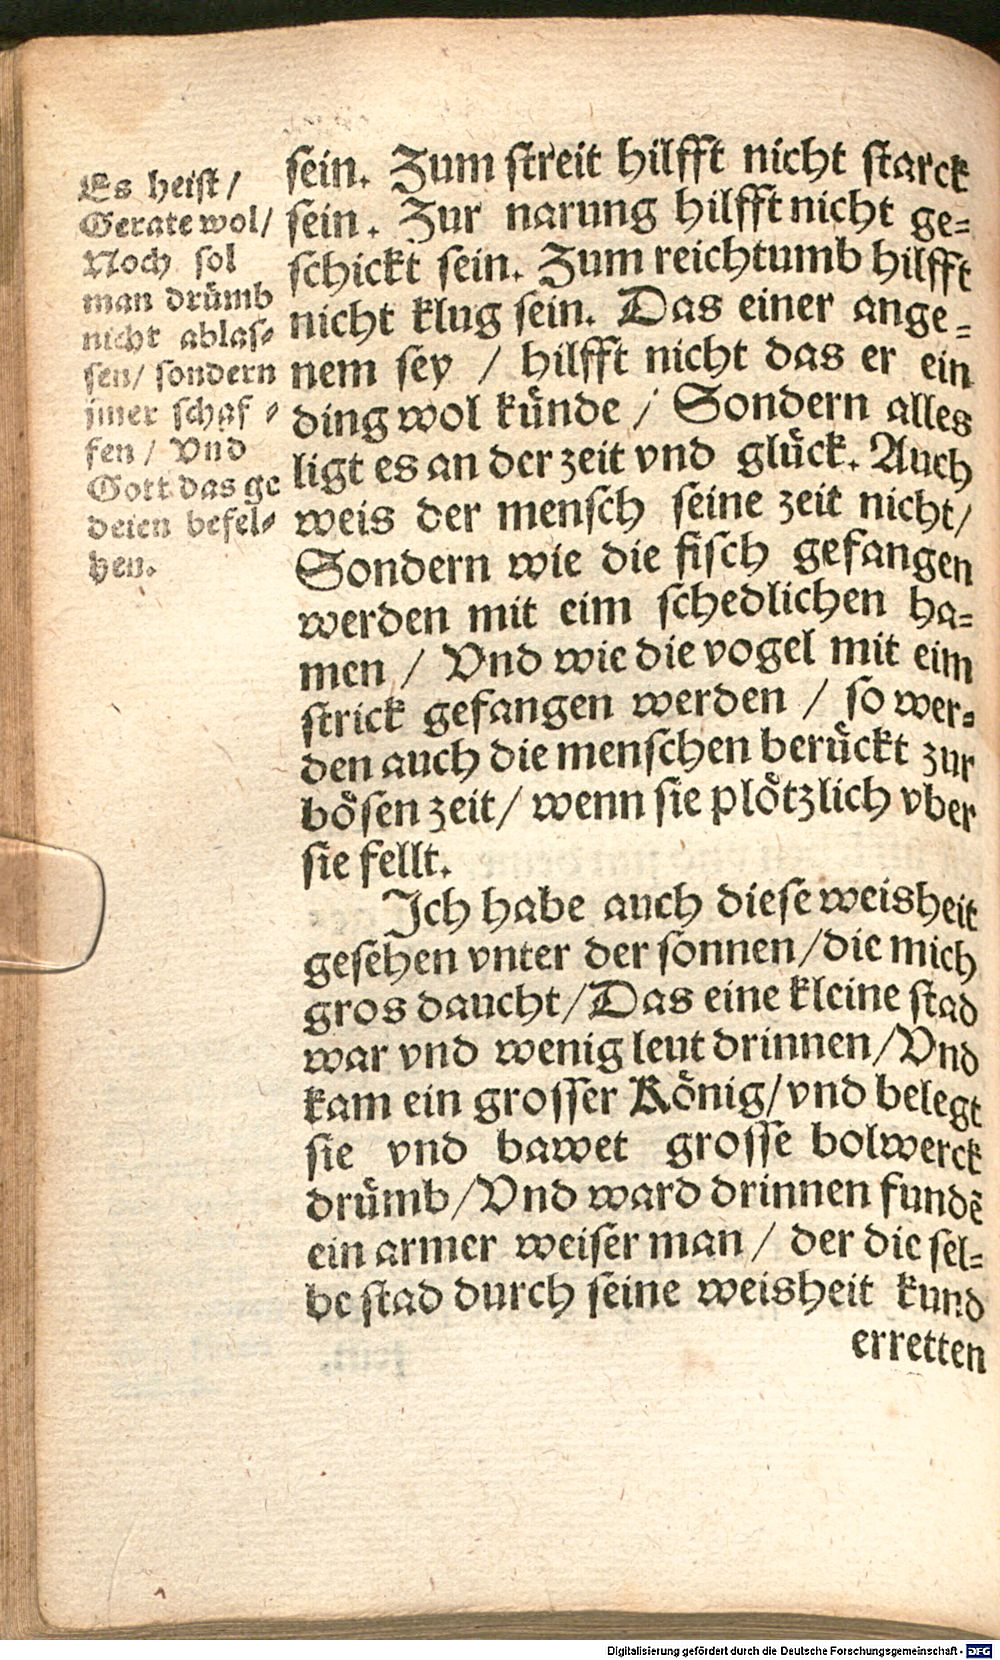 Es heist /
Gerate wol /
Noch sol
man drümb
nicht ablas⸗
sen / sondern
jmer schaf⸗
fen / Vnd
Gott das ge
deien befel⸗
hen.
sein. Zum streit hilfft nicht starck
sein. Zur narung hilfft nicht ge⸗
schickt sein. Zum reichtumb hilfft
nicht klug sein. Das einer ange⸗
nem sey / hilfft nicht das er ein
ding wol künde / Sondern alles
ligt es an der zeit vnd glück. Auch
weis der mensch seine zeit nicht /
Sondern wie die fisch gefangen
werden mit eim schedlichen ha⸗
men / Vnd wie die vogel mit eim
strick gefangen werden / so wer⸗
den auch die menschen berückt zur
bösen zeit / wenn sie plötzlich vber
sie fellt.
Ich habe auch diese weisheit
gesehen vnter der sonnen / die mich
gros daucht / Das eine kleine stad
war vnd wenig leut drinnen / Vnd
kam ein grosser König / vnd belegt
sie vnd bawet grosse bolwerck
drümb / Vnd ward drinnen fundẽ
ein armer weiser man / der die sel⸗
be stad durch seine weisheit kund
erretten
Digitalisierung gefördert durch die Deutsche Forschungsgemeinschaft - DFG